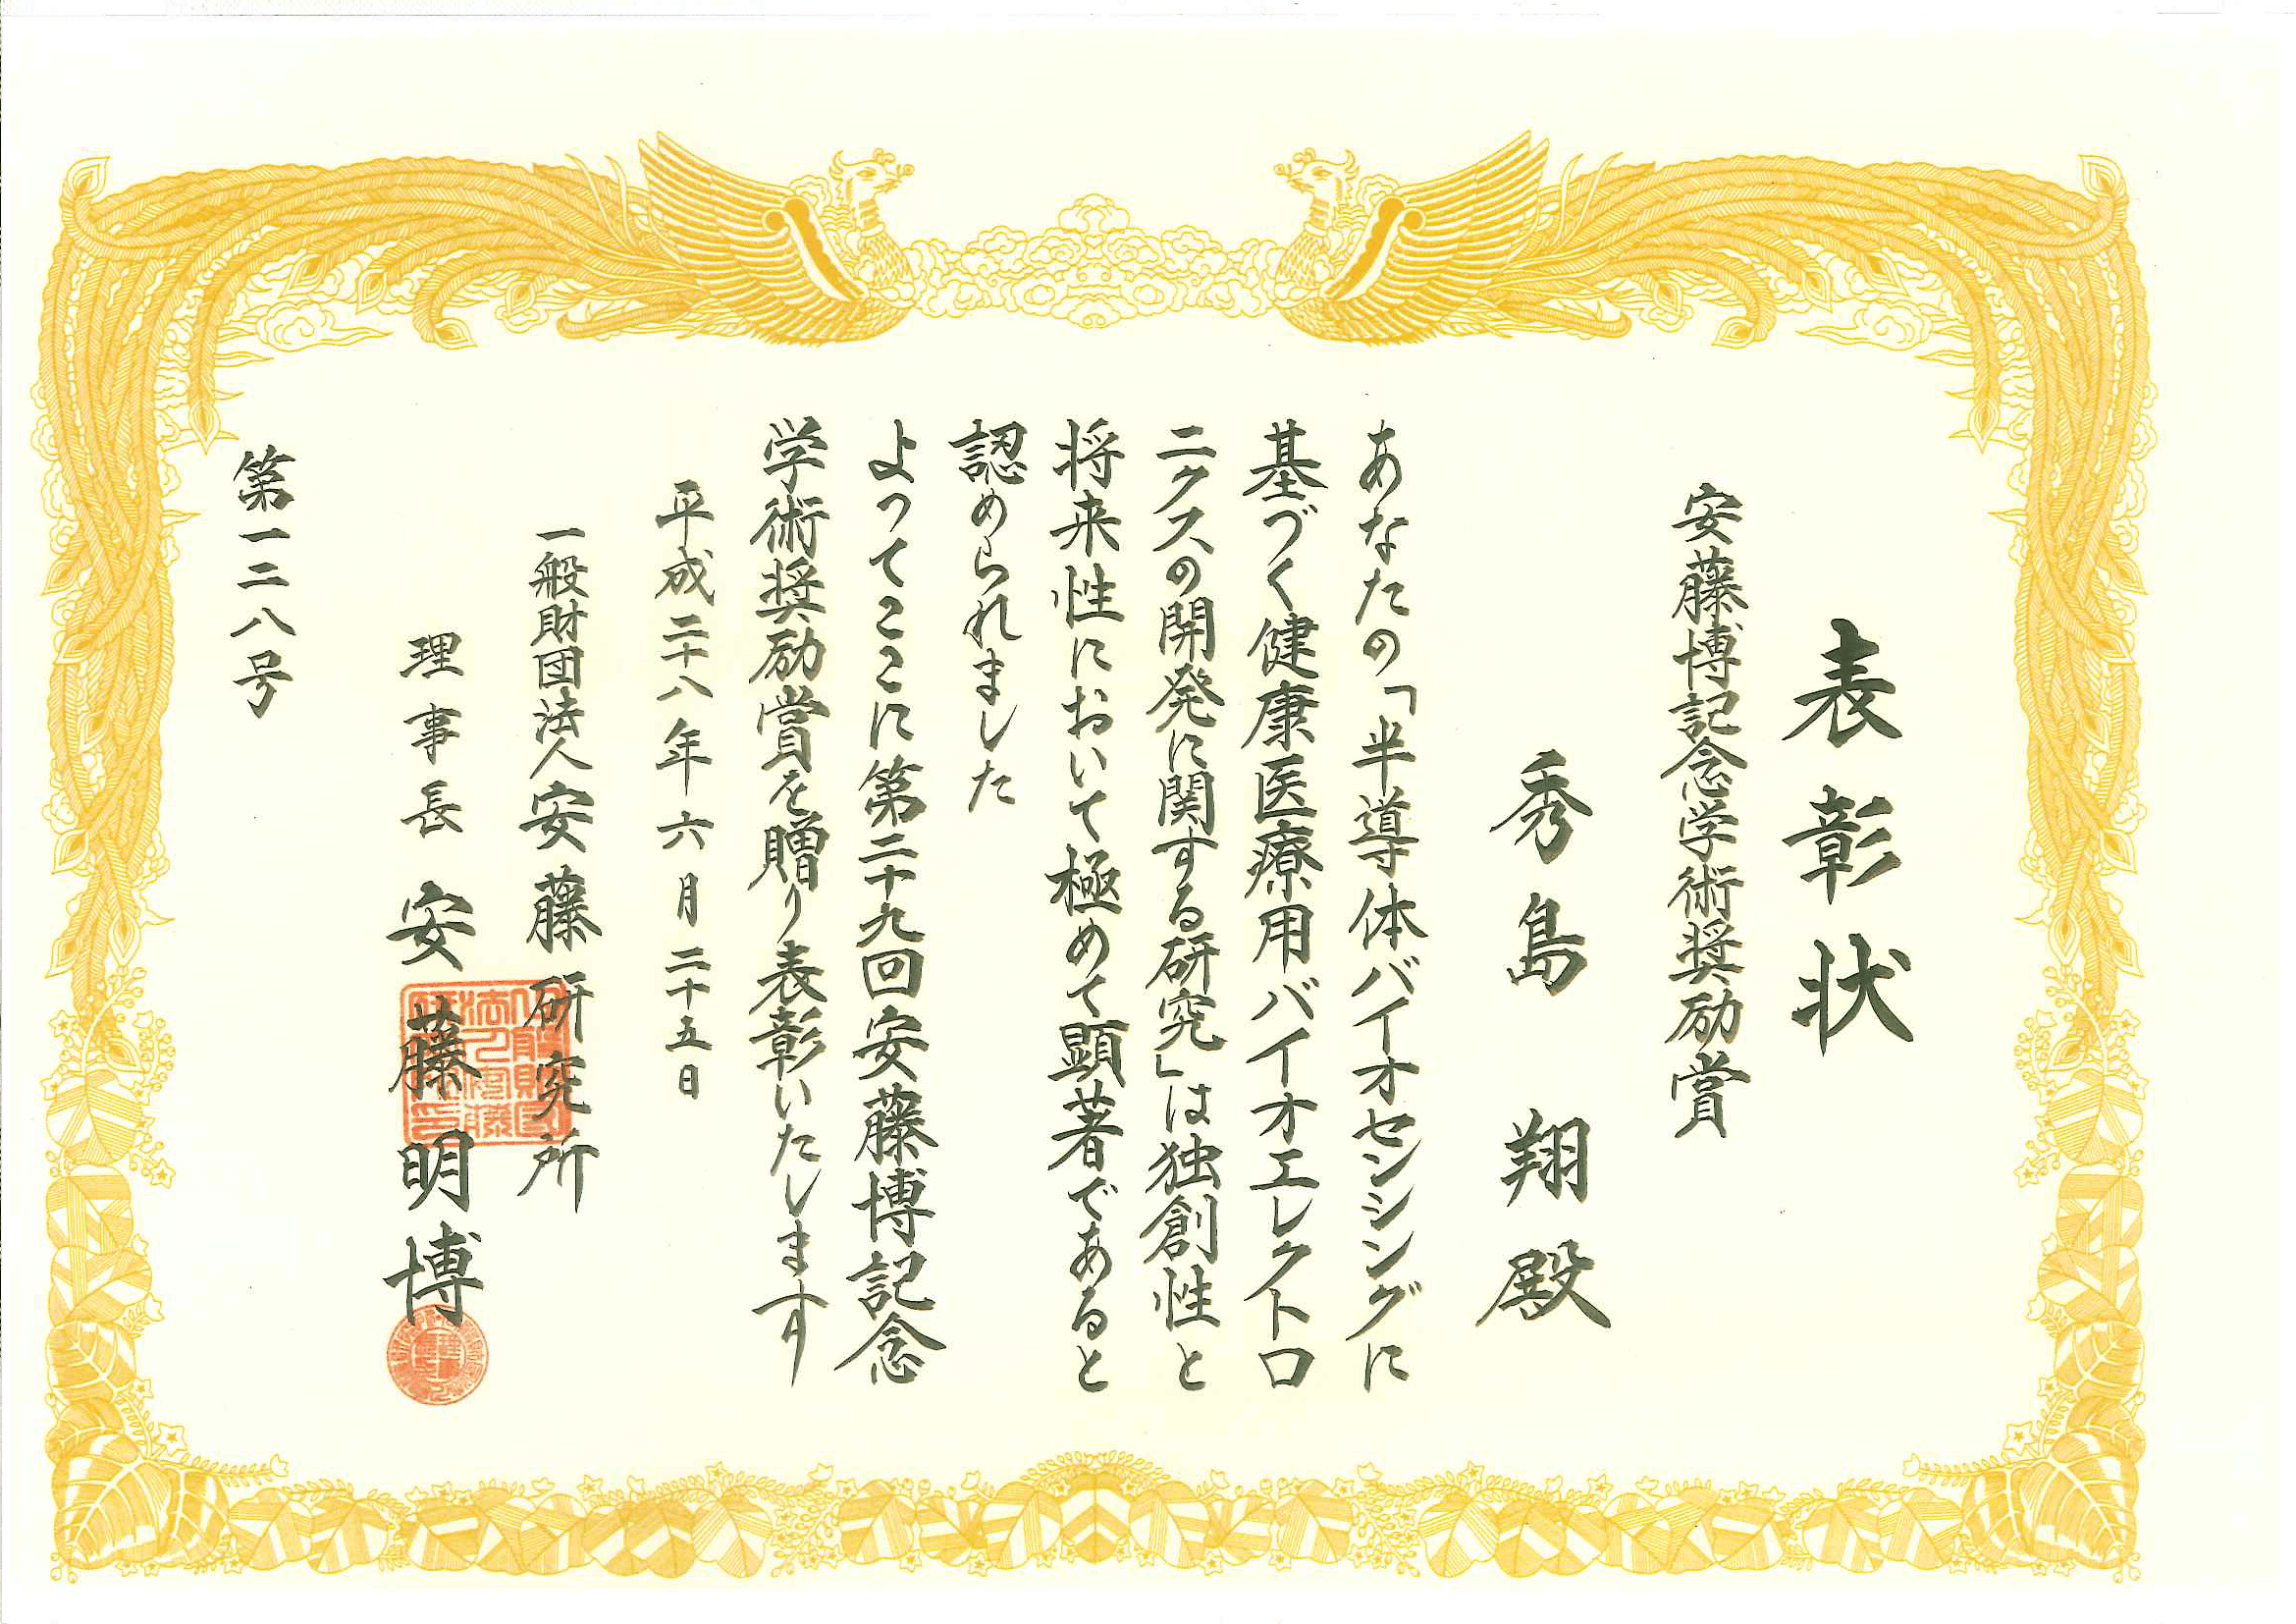 表彰状
安藤博記念学術奨励賞
秀島翔殿
あなたの「半導体バイオセンシングに
基づく健康医療用バイオエレクトロ
ニクスの開発に関する研究」は独創性と
将来性において極めて顕著であると
認められました
よってここに第二十九回安藤博記念
学術奨励賞を贈り表彰いたします
平成二十八年六月二十五日
一般財団法人安藤研究所
理事長 安藤明博
第一二八号